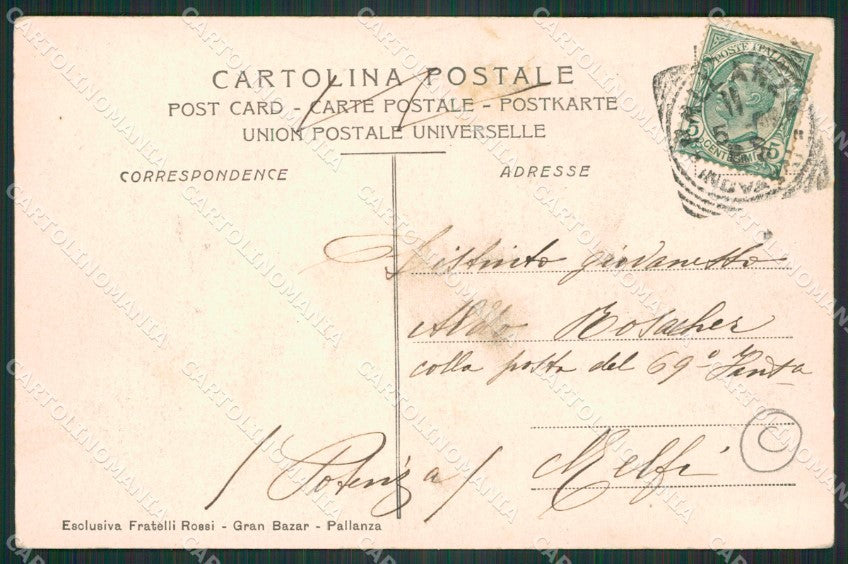 CARTOLINA POSTALE
POST CARD - CARTE POSTALE - POSTKARTE
UNION POSTALE UNIVERSELLE
CORRESPONDENCE
ADRESSE
POSTE ITALIANE
5 CENTESIMI 5
Distinto giovanetto
Aldo Bosacher
colla posta del 69° Fant.a
/ Potenza / Melfi
C
Esclusiva Fratelli Rossi - Gran Bazar - Pallanza
CARTOLINOMANIA